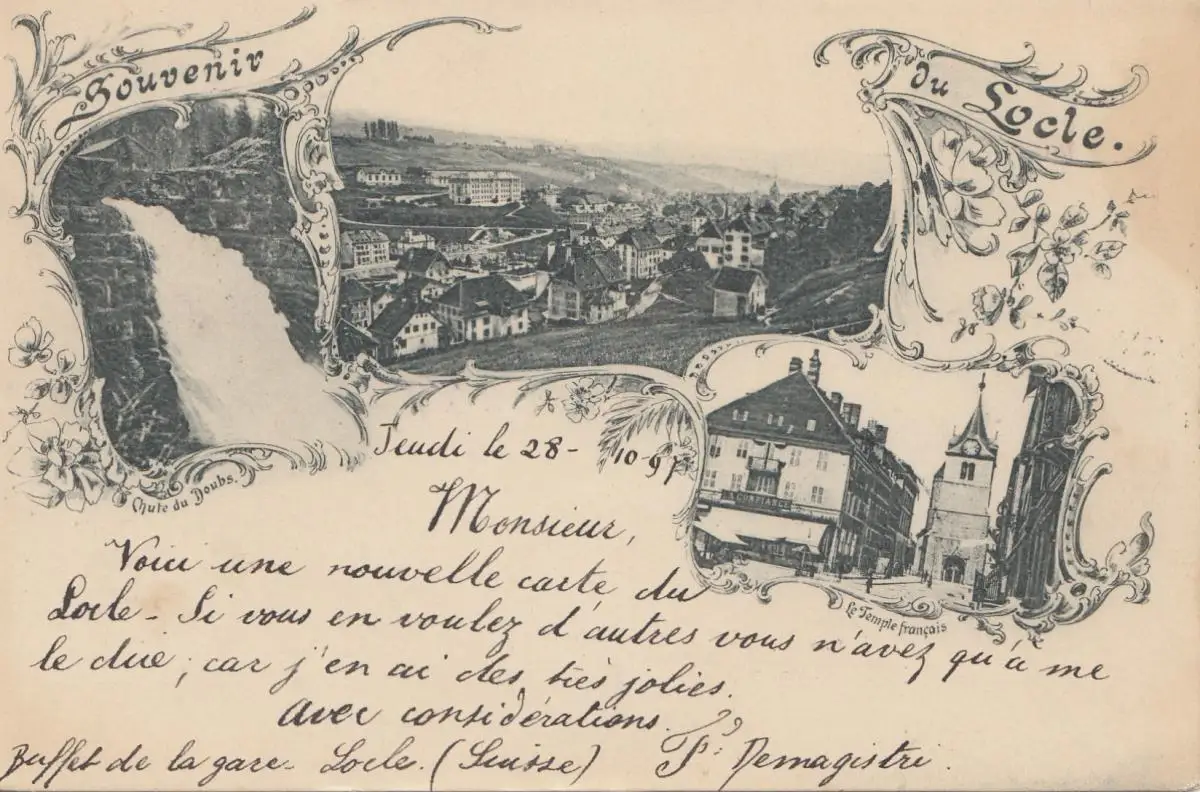 Souvenir
du Locle.
Chute du Doubs.
CONFIANCE
Le Temple français
Jeudi le 28-10-97
Monsieur,
Voici une nouvelle carte du
Locle - Si vous en voulez d'autres vous n'avez qu'à me
le dire, car j'en ai des très jolies.
Avec considérations.
Buffet de la gare - Locle. (Suisse) P. Demagistri.